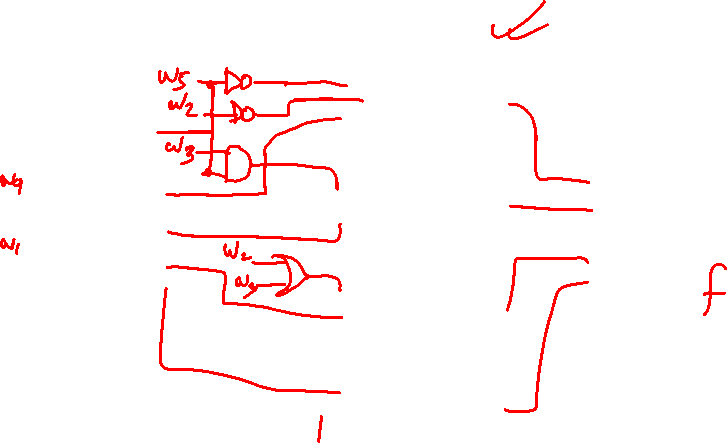 w5
w2
w3
w4
w1
w2
f
1